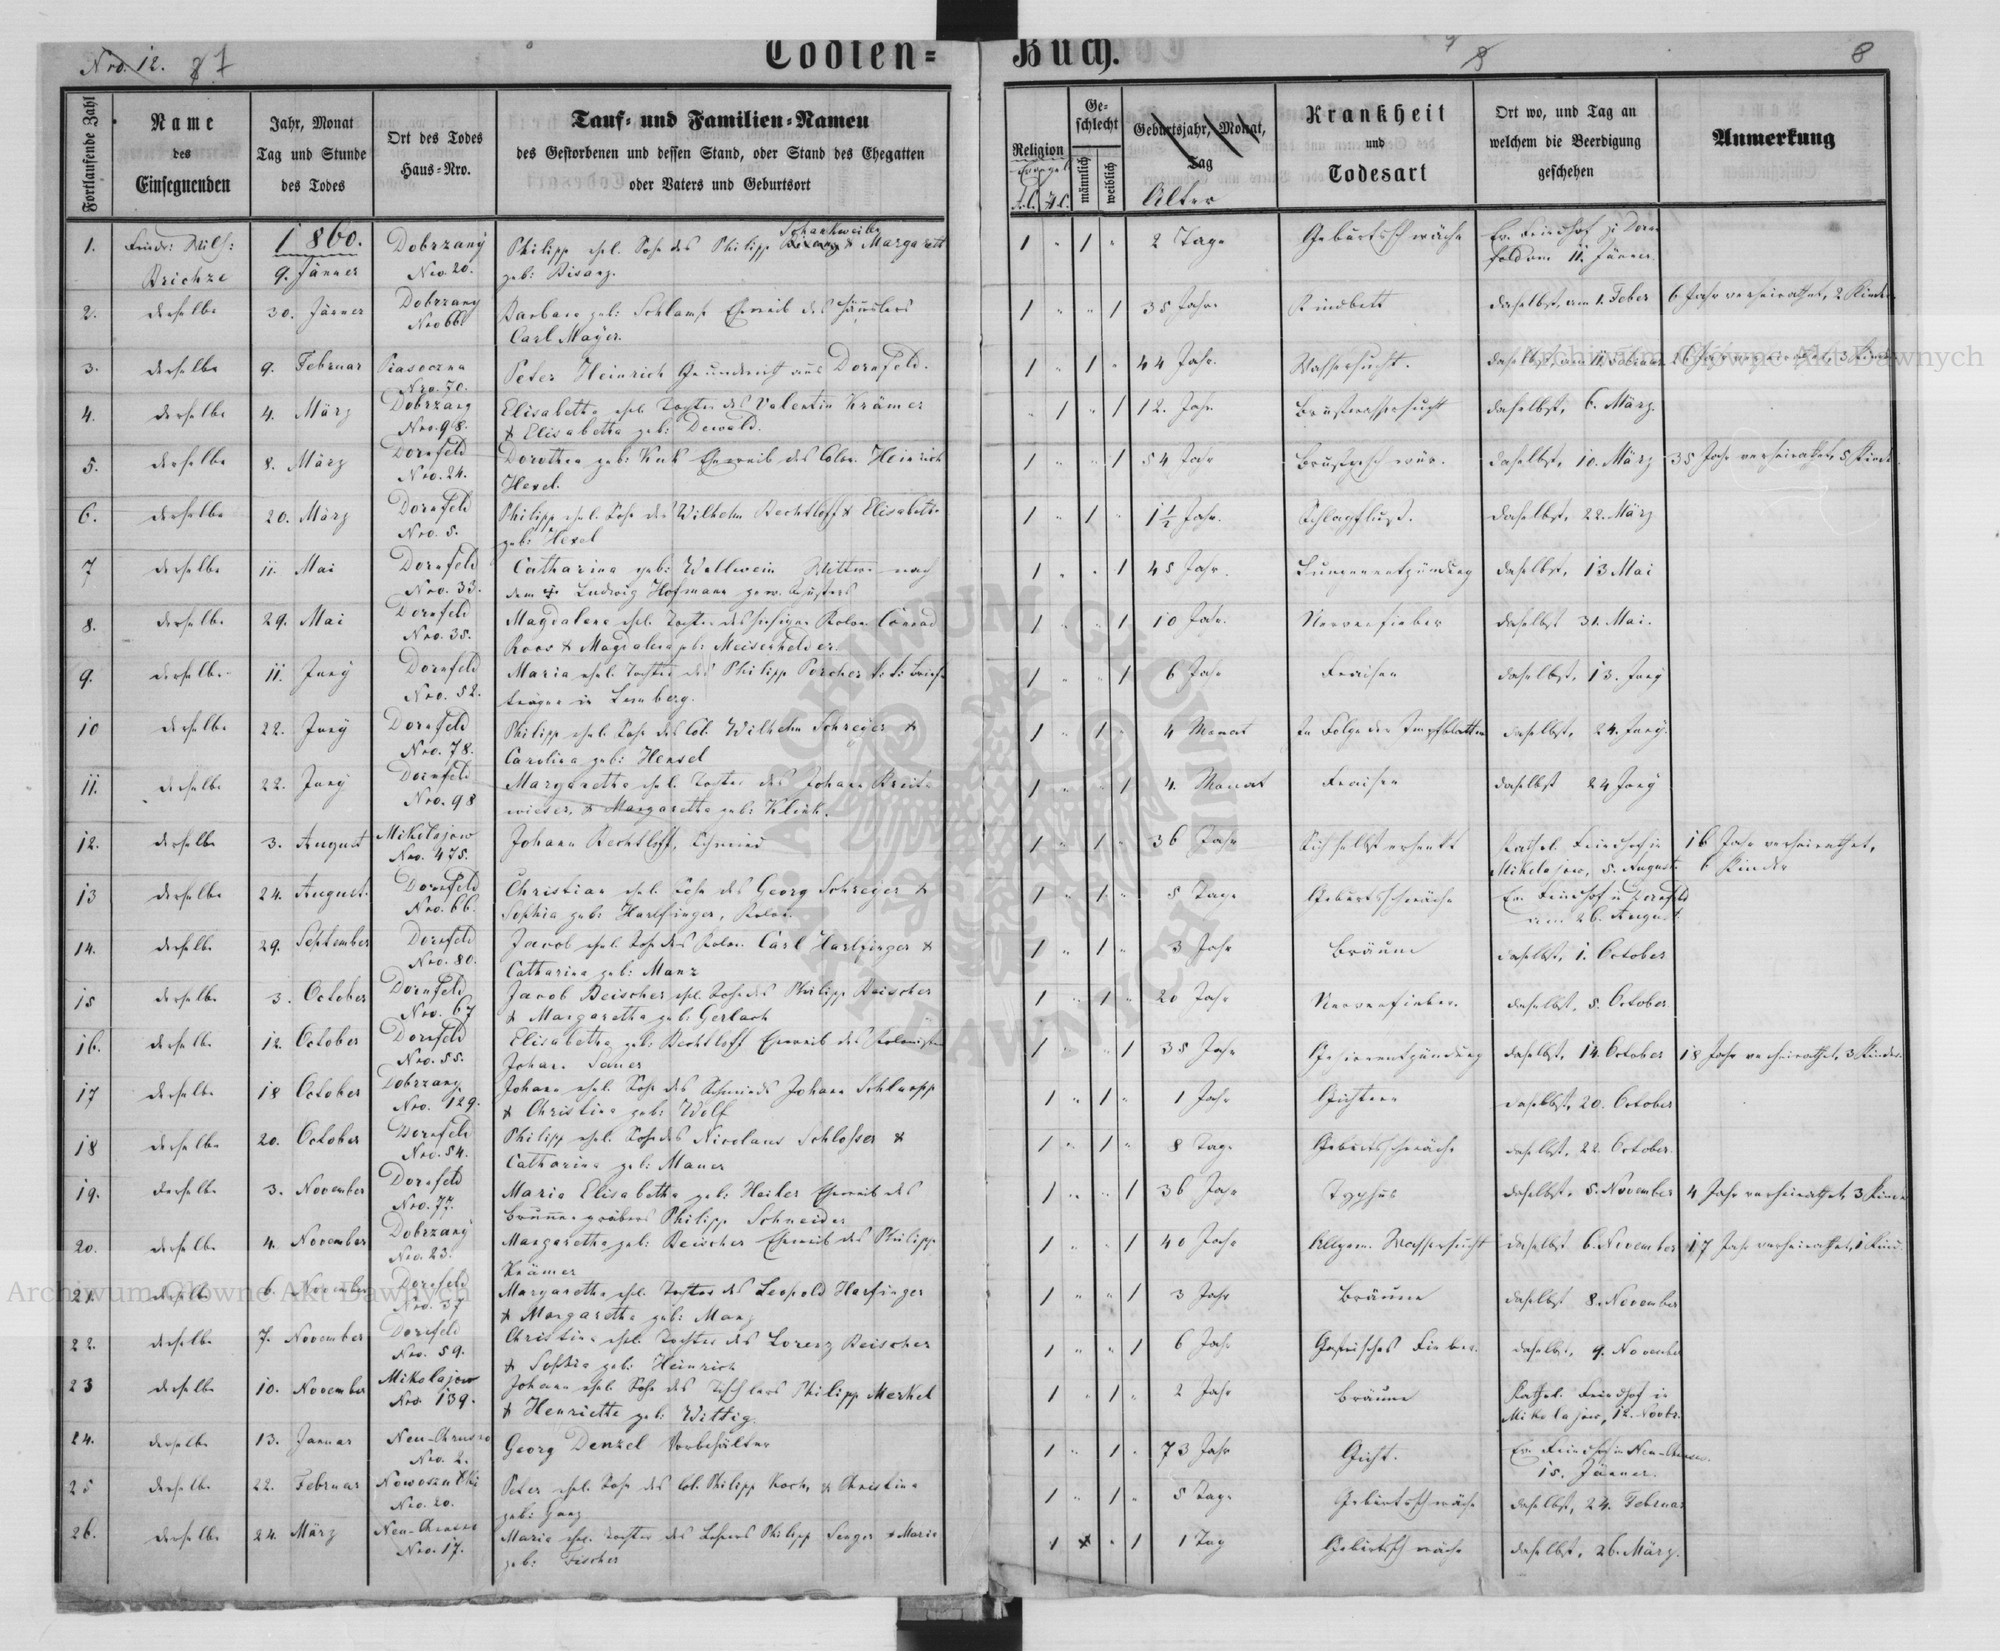 Nro. 12. 7
Todten-Buch.
8
Fortlaufende Zahl
Name
des
Einsegnenden
Jahr, Monat
Tag und Stunde
des Todes
Ort des Todes
Haus-Nro.
Tauf- und Familien-Namen
des Gestorbenen und dessen Stand, oder Stand des Ehegatten
oder Vaters und Geburtsort
Religion
Ge-
schlecht
männlich
weiblich
Geburtsjahr, Monat,
Tag
Alter
Krankheit
und
Todesart
Ort wo, und Tag an
welchem die Beerdigung
geschehen
Anmerkung
1860.
1. 9. Jänner Dobrzany Nro. 20. Philipp ehel. Sohn des Philipp Schankweiler & Margareth
geb: Bisanz. 1 1 2 Tage Geburtsschwäche Ev. Friedhof zu Dorn
feld am 11. Jänner.
2. derselbe 30. Jänner Dobrzany Nro 66 Barbara geb: Schlamp Eheweib des Häuslers
Carl Mayer. 1 1 35 Jahre Kindbett daselbst, am 1. Feber 6 Jahr verheirathet, 2 Kinder
3. derselbe 9. Februar Piasoczna Nro. 70. Peter Heinrich Grundwirth aus Dornfeld. 1 1 44 Jahr. Wassersucht. daselbst, am 11. Februar
4. derselbe 4. März Dobrzany Nro. 98. Elisabetha ehel. Tochter des Valentin Krämer
& Elisabetha geb: Dewald. 1 1 12. Jahr Brustwassersucht daselbst, 6. März.
5. derselbe 8. März Dornfeld Nro. 24. Dorothea geb: Kuk Eheweib des Colon. Heinrich
Hexel. 1 1 54 Jahr Brustgeschwür. daselbst, 10. März 35 Jahr verheirathet, 5 Kinder
6. derselbe 20. März Dornfeld Nro. 5. Philipp ehel. Sohn des Wilhelm Bechtloff & Elisabetha
geb: Hexel 1 1 1½ Jahr. Schlagfluß. daselbst, 22. März
7 derselbe 11. Mai Dornfeld Nro. 33. Catharina geb: Wallwein Wittwe nach
dem Ludwig Hofmann gew. Schusters 1 1 45 Jahr. Lungenentzündung daselbst, 13 Mai
8. derselbe 29. Mai Dornfeld Nro. 35. Magdalena ehel. Tochter des hiesigen Kolon. Conrad
Roos & Magdalena geb: Meisenhelder. 1 1 10 Jahr. Nervenfieber daselbst 31. Mai.
9. derselbe 11. Juny Dornfeld Nro. 52. Maria ehel. Tochter des Philipp Porcher k: k: Brief-
träger in Lemberg. 1 1 6 Jahr Fraisen daselbst, 13. Juny
10 derselbe 22. Juny Dornfeld Nro. 78. Philipp ehel. Sohn des Col. Wilhelm Schreyer &
Carolina geb: Hensel 1 1 4 Monat In Folge der Impfblattern daselbst, 24. Juny.
11. derselbe 22. Juny Dornfeld Nro. 98 Margaretha ehel. Tochter des Johann Breit-
wieser, & Margaretha geb: Klink. 1 1 4. Monat Fraisen daselbst 24 Juny
12. derselbe 3. August Mikolajow Nro. 475. Johann Bechtloff, Schmied 1 1 36 Jahr Sich selbst erhenkt Kathol. Friedhof in
Mikolajow, 5. August 16 Jahr verheirathet,
6 Kinder
13 derselbe 24. August. Dornfeld Nro. 66. Christian ehel. Sohn des Georg Schreyer &
Sophia geb: Harlfinger, Kolon. 1 1 5 Tage Geburtsschwäche Ev. Friedhof in Dornfeld
am 26. August
14. derselbe 29. September Dornfeld Nro. 80. Jacob ehel. Sohn des Kolon. Carl Harlfinger &
Catharina geb: Manz 1 1 3 Jahr Bräune daselbst, 1. October
15 derselbe 3. October Dornfeld Nro. 67 Jacob Beischer ehel. Sohn des Philipp Beischer
& Margaretha geb: Gerlach 1 1 20 Jahr Nervenfieber. daselbst, 5. October
16. derselbe 12. October Dornfeld Nro. 55. Elisabetha geb: Bechtloff Eheweib des Kolonisten
Johann Sauer 1 1 35 Jahr Gehirnentzündung daselbst, 14. October 18 Jahr verheirathet, 3 Kinder
17 derselbe 18 October Dobrzany Nro. 129. Johann ehel. Sohn des Schmieds Johann Schlampp
& Christina geb: Wolf 1 1 1 Jahr Gichtern daselbst, 20. October
18 derselbe 20. October Dornfeld Nro. 54. Philipp ehel. Sohn des Nicolaus Schlosser &
Catharina geb: Mauer 1 1 8 Tage Geburtsschwäche daselbst, 22. October.
19. derselbe 3. November Dornfeld Nro. 77. Maria Elisabetha geb: Heiler Eheweib des
Brunnengräbers Philipp Schneider 1 1 36 Jahr Typhus daselbst, 5. November 4 Jahr verheirathet, 3 Kinder
20. derselbe 4. November Dobrzany Nro. 23. Margaretha geb: Beischer Eheweib des Philipp
Krämer 1 1 40 Jahr Allgem. Wassersucht daselbst 6. November 17 Jahr verheirathet, 1 Kind.
21. derselbe 6. November Dornfeld Nro. 37 Margaretha ehel. Tochter des Leopold Harfinger
& Margaretha geb: Manz 1 1 3 Jahr Bräune daselbst 8. November
22. derselbe 7. November Dornfeld Nro. 59. Christina ehel. Tochter des Lorenz Beischer
& Sophia geb: Heinrich 1 1 6 Jahr Gastrisches Fieber. daselbst, 9. November
23 derselbe 10. November Mikolajow Nro 139. Johann ehel. Sohn des Tischlers Philipp Merkel
& Henriette geb: Wittig. 1 1 2 Jahr Bräune Kathol. Friedhof in
Mikolajow, 12. Novbr.
24. derselbe 13. Januar Neu-Chrusno Nro. 2. Georg Denzel Vorbehälter 1 1 73 Jahr Gicht. Ev. Friedhof in Neu-Chrusno.
15. Jänner.
25 derselbe 22. Februar Nro. 20. Peter ehel. Sohn des Col. Philipp Koch, & Christina
geb: Ganz 1 1 5 Tage Geburtsschwäche daselbst, 24. Februar
26. derselbe 24. März Neu-Chrusno Nro. 17. Maria ehel. Tochter des Lehrers Philipp Senger & Maria
geb: Fischer 1 1 1 Tag Geburtsschwäche daselbst, 26. März.
Archiwum Główne Akt Dawnych
Archiwum Główne Akt Dawnych
ARCHIWUM GŁÓWNE AKT DAWNYCH